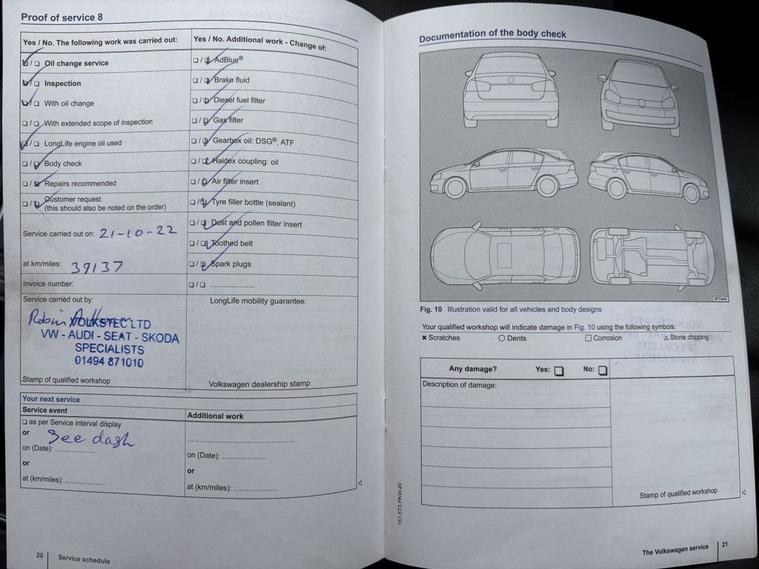 Proof of service 8
Yes / No. The following work was carried out:
☑/☐ Oil change service
☑/☐ Inspection
☑/☐ With oil change
☐/☑ With extended scope of inspection
☑/☐ LongLife engine oil used
☐/☑ Body check
☐/☑ Repairs recommended
☐/☑ Customer request
(this should also be noted on the order)
Service carried out on: 21-10-22
at km/miles: 39137
Invoice number:
Service carried out by:
Robin
VOLKSTEC LTD
VW - AUDI - SEAT - SKODA
SPECIALISTS
01494 871010
Stamp of qualified workshop
Yes / No. Additional work - Change of:
☐/☑ AdBlue®
☐/☑ Brake fluid
☐/☑ Diesel fuel filter
☐/☑ Gas filter
☐/☑ Gearbox oil: DSG®, ATF
☐/☑ Haldex coupling: oil
☐/☑ Air filter insert
☐/☑ Tyre filler bottle (sealant)
☐/☑ Dust and pollen filter insert
☐/☑ Toothed belt
☐/☑ Spark plugs
☐/☐ ....................
LongLife mobility guarantee:
Volkswagen dealership stamp
Your next service
Service event
☐ as per Service interval display
or See dash
on (Date): ..............
or
at (km/miles): ..............
Additional work
..............................
on (Date): ..............
or
at (km/miles): ..............
20 | Service schedule
Documentation of the body check
Fig. 10 Illustration valid for all vehicles and body designs
Your qualified workshop will indicate damage in Fig. 10 using the following symbols:
× Scratches ○ Dents □ Corrosion △ Stone chipping
Any damage? Yes: ☐ No: ☐
Description of damage:
Stamp of qualified workshop
151.5T3.PKW.20
The Volkswagen service | 21